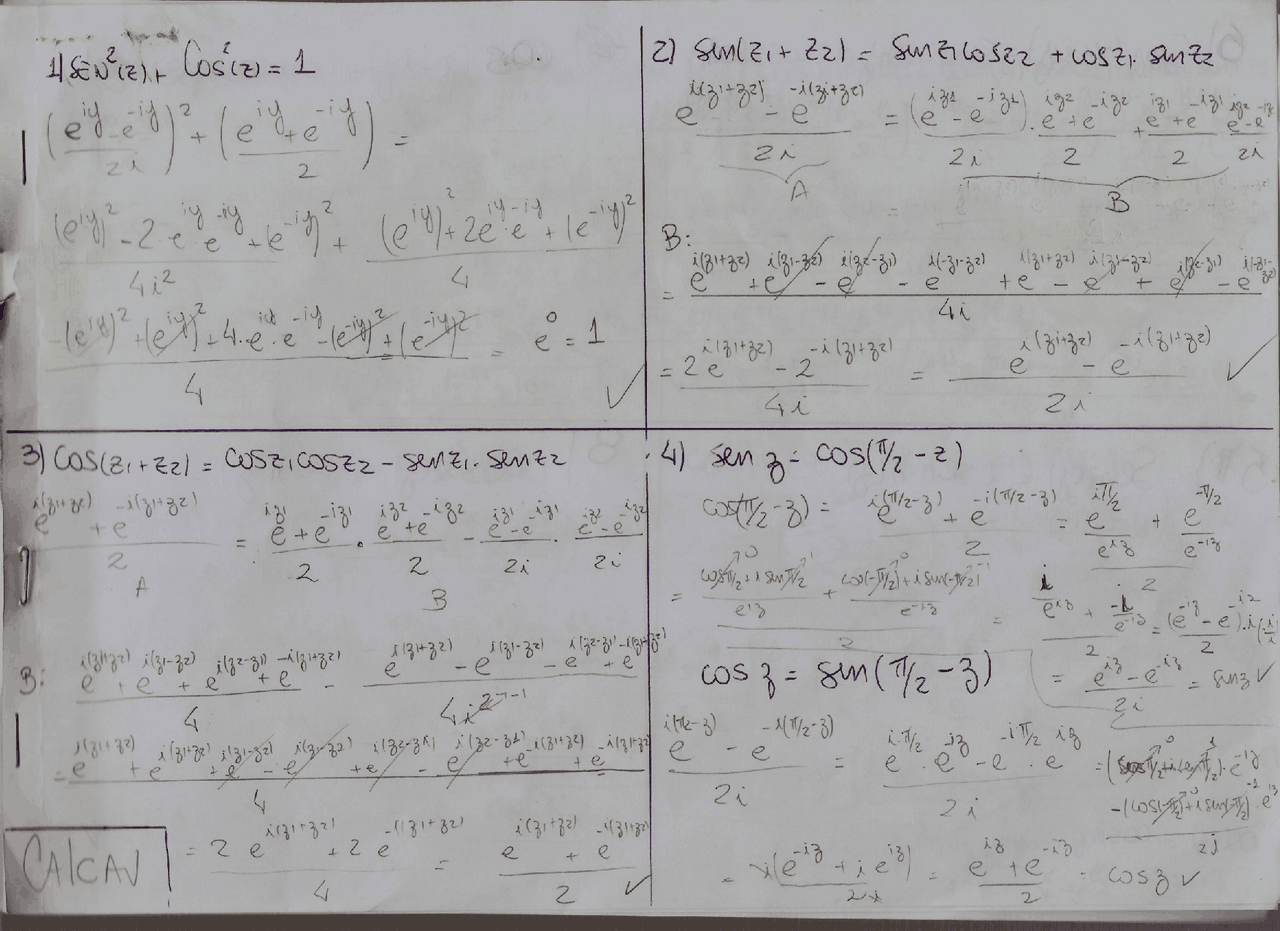 1) SEN²(z) + Cos²(z) = 1
((e^{iy} - e^{-iy})/2i)² + ((e^{iy} + e^{-iy})/2) =
((e^{iy})² - 2·e^{iy}·e^{-iy} + (e^{-iy})²)/4i² + ((e^{iy})² + 2e^{iy}·e^{-iy} + (e^{-iy})²)/4
(-(e^{iy})² + (e^{iy})² + 4·e^{iy}·e^{-iy} - (e^{-iy})² + (e^{-iy})²)/4 = e^0 = 1 ✓
2) Sen(z1 + z2) = Senz1 cosz2 + cosz1. senz2
(e^{i(z1+z2)} - e^{-i(z1+z2)})/2i = (e^{iz1} - e^{-iz1})/2i · (e^{iz2} + e^{-iz2})/2 + (e^{iz1} + e^{-iz1})/2 (e^{iz2} - e^{-iz2})/2i
A B
B:
= (e^{i(z1+z2)} + e^{i(z1-z2)} - e^{i(z2-z1)} - e^{i(-z1-z2)} + e^{i(z1+z2)} - e^{i(z1-z2)} + e^{i(z2-z1)} - e^{i(-z1-z2)})/4i
= (2e^{i(z1+z2)} - 2^{-i(z1+z2)})/4i = (e^{i(z1+z2)} - e^{-i(z1+z2)})/2i ✓
3) Cos(z1 + z2) = cosz1 cosz2 - senz1. senz2
(e^{i(z1+z2)} + e^{-i(z1+z2)})/2 = (e^{iz1} + e^{-iz1})/2 · (e^{iz2} + e^{-iz2})/2 - (e^{iz1} - e^{-iz1})/2i · (e^{iz2} - e^{-iz2})/2i
A B
B: (e^{i(z1+z2)} + e^{i(z1-z2)} + e^{i(z2-z1)} + e^{-i(z1+z2)})/4 - (e^{i(z1+z2)} - e^{i(z1-z2)} - e^{i(z2-z1)} + e^{-i(z1+z2)})/4i² -1
= (e^{i(z1+z2)} + e^{i(z1+z2)} + e^{i(z1-z2)} - e^{i(z1-z2)} + e^{i(z2-z1)} - e^{i(z2-z1)} + e^{-i(z1+z2)} + e^{-i(z1+z2)})/4
= (2e^{i(z1+z2)} + 2e^{-i(z1+z2)})/4 = (e^{i(z1+z2)} + e^{-i(z1+z2)})/2 ✓
CAlCAV
4) sen z = cos(π/2 - z)
cos(π/2 - z) = (e^{i(π/2-z)} + e^{-i(π/2-z)})/2 = (e^{iπ/2}/e^{iz} + e^{-π/2}/e^{-iz})/2
= ((cosπ/2 + i senπ/2)/e^{iz} + (cos(-π/2) + i sen(-π/2))/e^{-iz})/2 = (i/e^{iz} + -i/e^{-iz})/2
= (e^{iz} - e^{-iz})/2i = senz ✓
cos z = sen(π/2 - z)
(e^{i(π/2-z)} - e^{-i(π/2-z)})/2i = (e^{iπ/2}·e^{-iz} - e^{-iπ/2}·e^{iz})/2i = ((cosπ/2 + i senπ/2)·e^{-iz}
-(cos(-π/2) + i sen(-π/2))·e^{iz})/2i
= i(e^{-iz} + i e^{iz})/2i = (e^{iz} + e^{-iz})/2 = cosz ✓